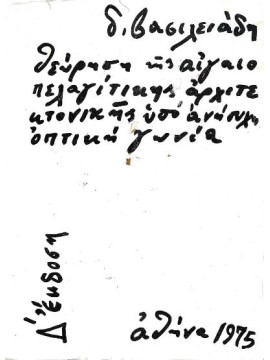 δ. βασιλειάδη
θεώρηση τῆς αἰγαιο
πελαγίτικης ἀρχιτε
κτονικῆς ὑπό ἀνήσυχη
ὀπτική γωνία
Δ' ἔκδοση
ἀθήνα 1975